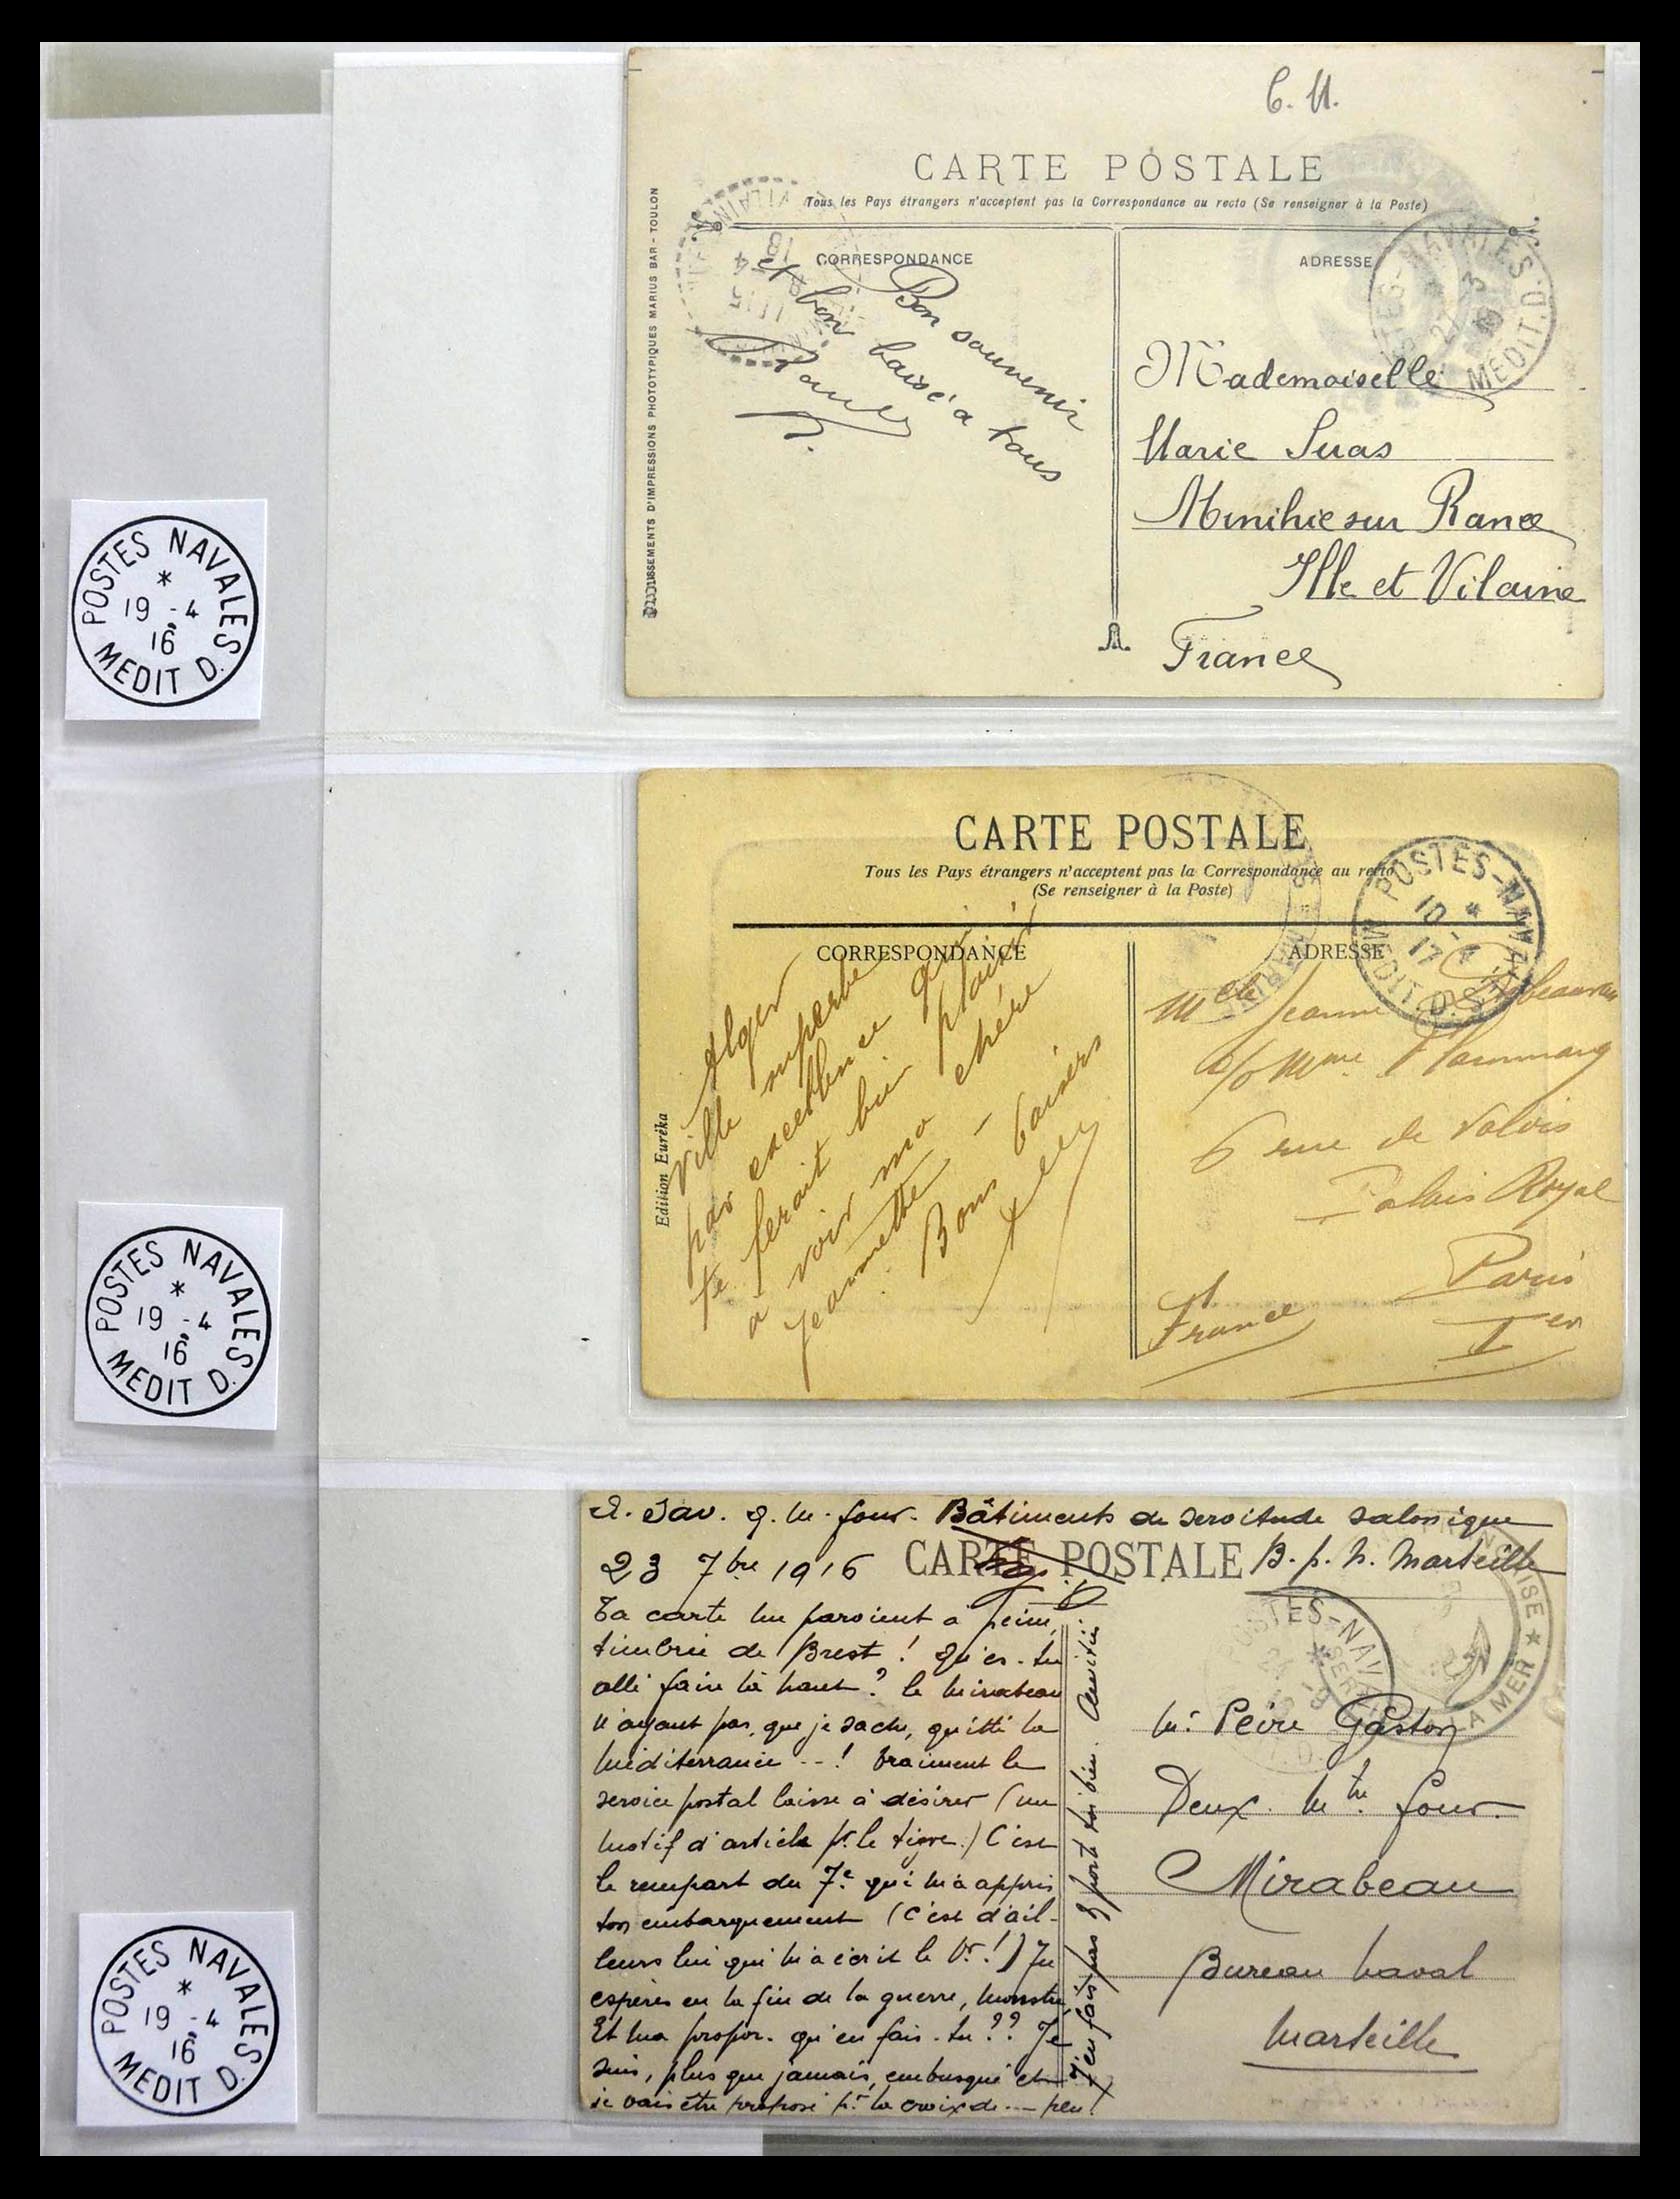 C. M.
CARTE POSTALE
Tous les Pays étrangers n'acceptent pas la Correspondance au recto (Se renseigner à la Poste)
CORRESPONDANCE
ADRESSE
POSTES-NAVALES
MEDIT.D.
Bon souvenir
et bon baisé a tous
Mademoiselle
Marie Suas
Minihic sur Rance
Ille et Vilaine
France
D'IMPRESSIONS PHOTOTYPIQUES MARIUS BAR - TOULON
POSTES NAVALES
*
19 -4
16
MEDIT D.
CARTE POSTALE
Tous les Pays étrangers n'acceptent pas la Correspondance au recto
(Se renseigner à la Poste)
CORRESPONDANCE
ADRESSE
POSTES-NAVALES
Alger
ville superbe
par excellence qui
te ferait bien plaisir
à voir ma chère
Jeannette –
Bons baisers
Edition Eureka
Mlle Jeanne
6 rue de Valois
Palais Royal
Paris
Ier
France
POSTES NAVALES
*
19 -4
16
MEDIT D.
Bâtiments de servitude Salonique
23 7bre 1916
CARTE POSTALE
B. p. N. Marseille
Ta carte me parvient à peine,
timbrée de Brest ! Qu'es-tu
allé faire là haut ? le Mirabeau
n'ayant pas, que je sache, quitté la
Méditerranée --! Vraiment le
service postal laisse à désirer (un
motif d'article pr le tigre.) C'est
le rempart du 7e qui m'a appris
ton embarquement (C'est d'ail-
leurs lui qui m'a écrit le 1er !) Tu
espères en la fin de la guerre,
Et ma propos. qu'en fais-tu ?? Je
suis, plus que jamais, embusqué et
je vais être proposé pr la croix de --- peu !
T'en fais pas & porte toi bien. Amitiés.
POSTES-NAV
A MER
Mr Peire Gaston
Deux. Mtre four.
Mirabeau
Bureau Naval
Marseille
POSTES NAVALES
*
19 -4
16
MEDIT D.